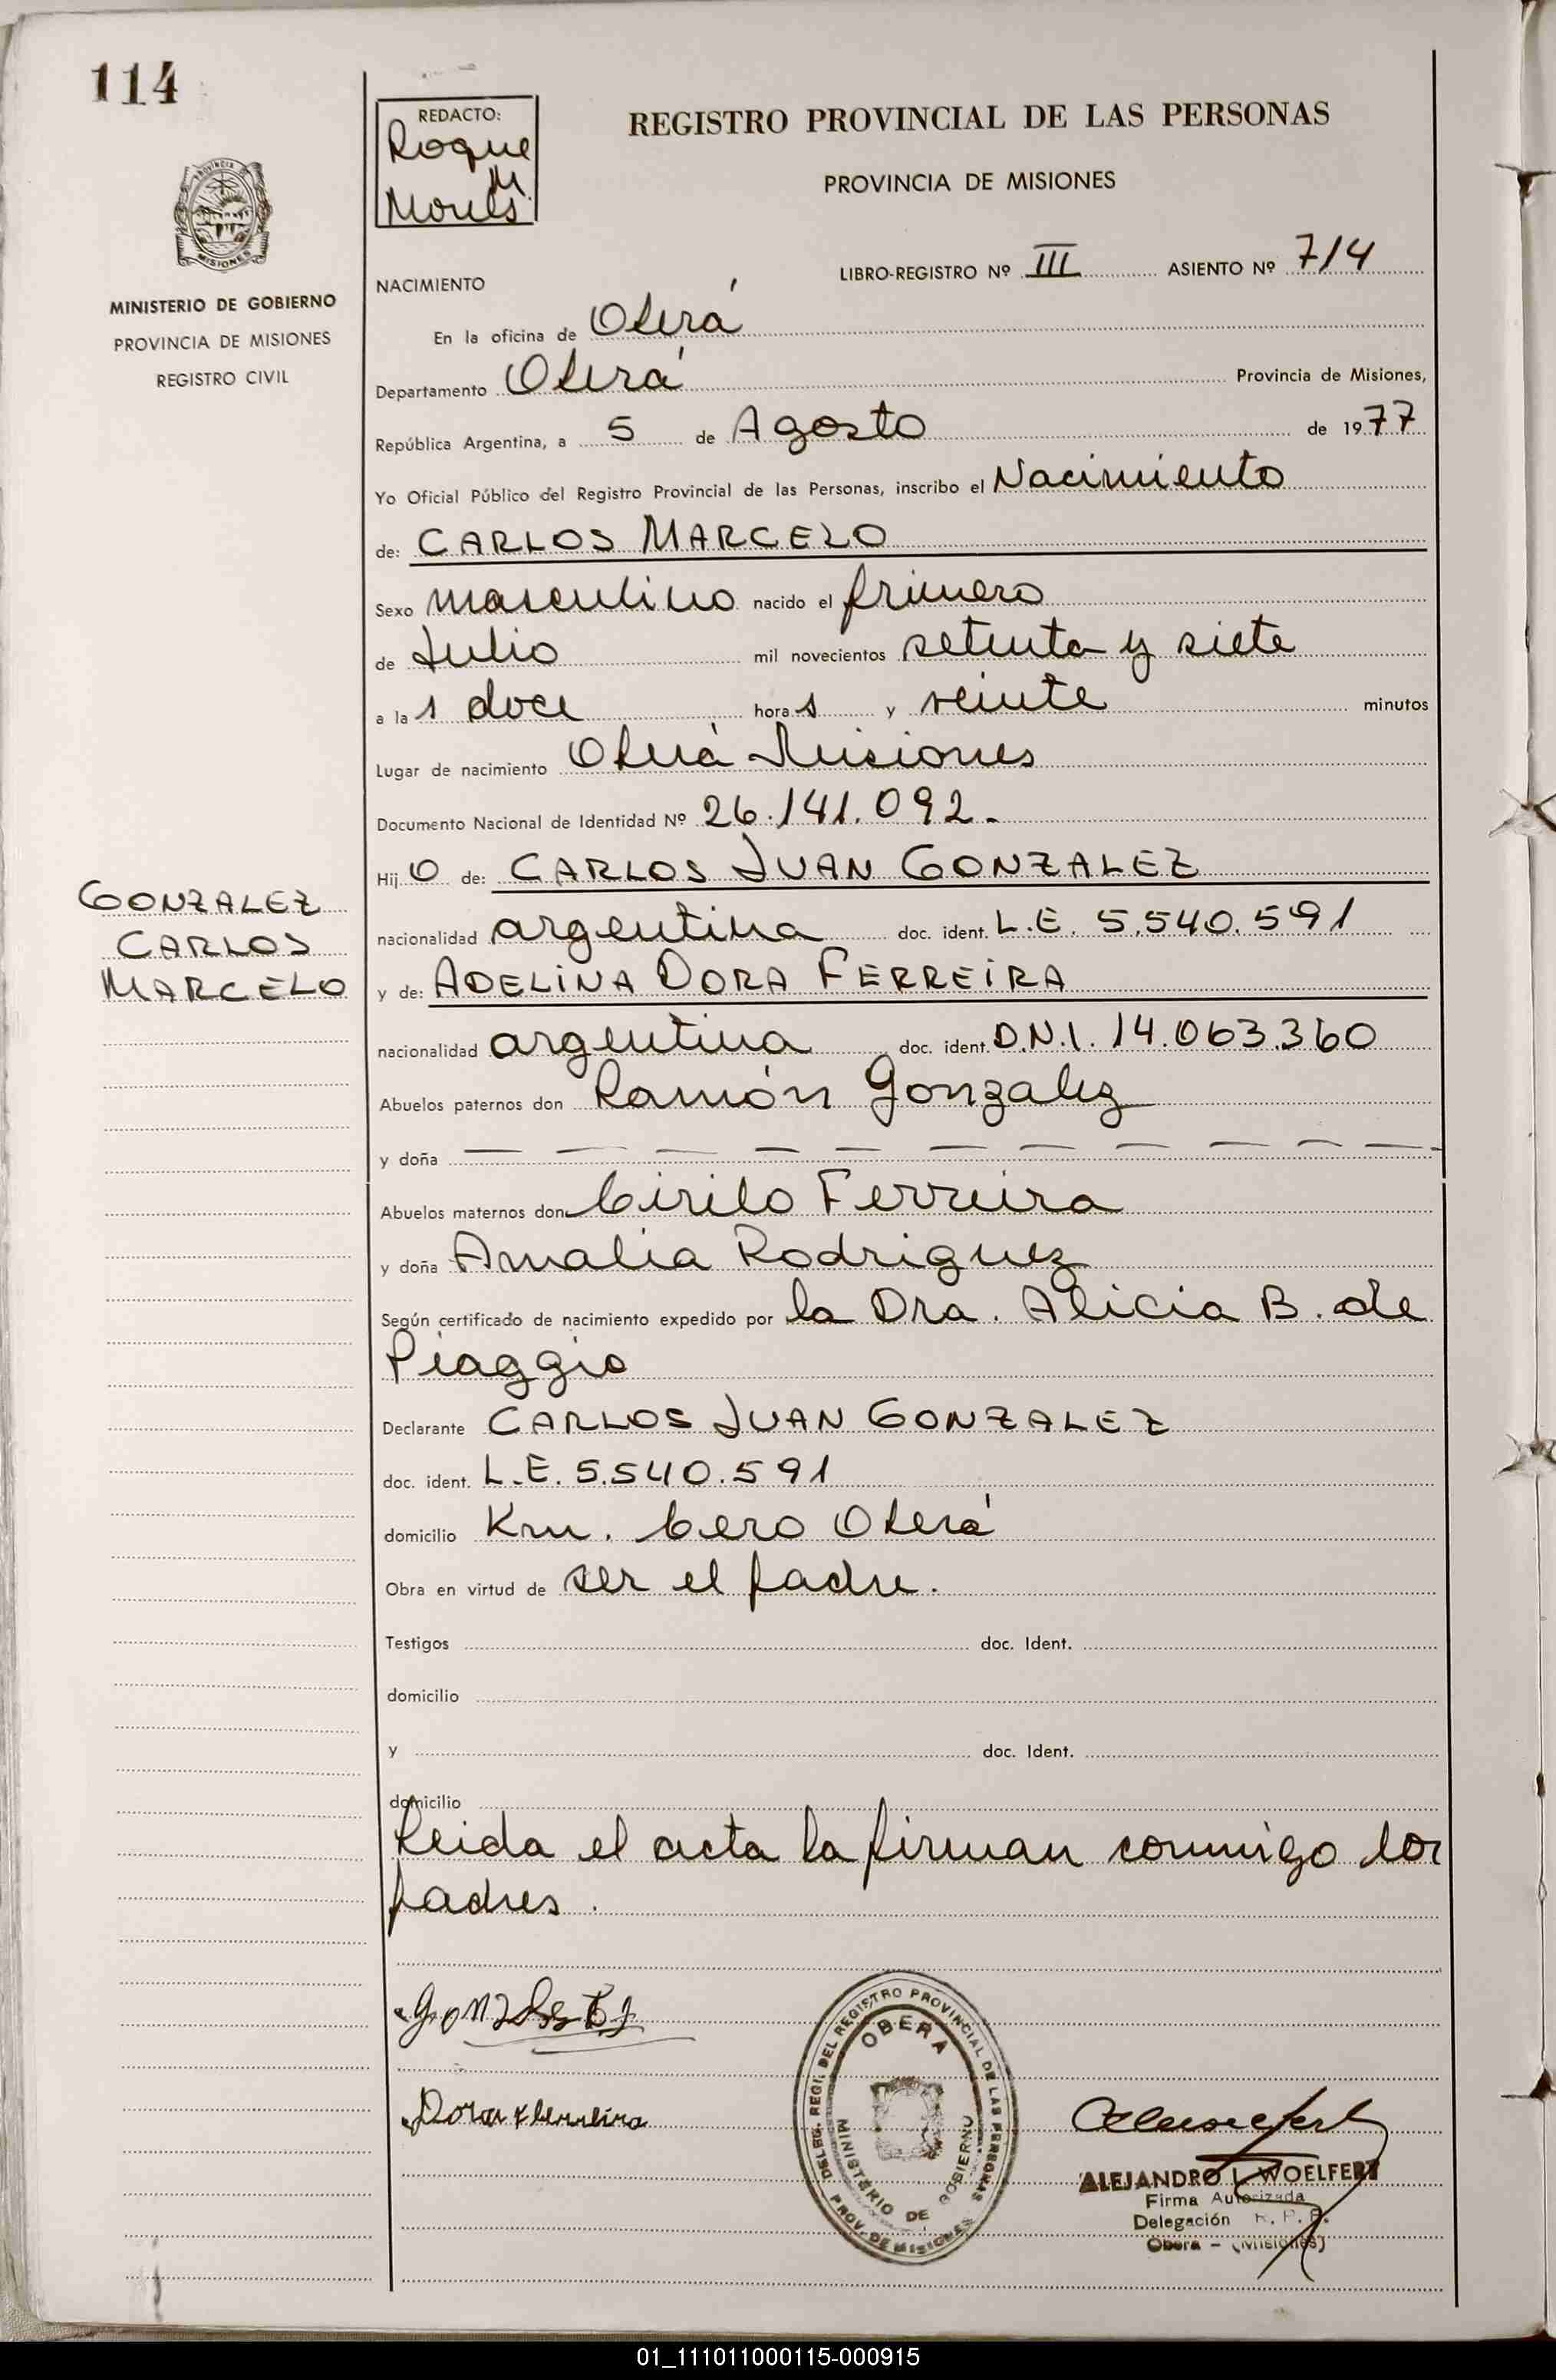 114
REDACTO:
Roque
M.
REGISTRO PROVINCIAL DE LAS PERSONAS
PROVINCIA DE MISIONES
PROVINCIA
MISIONES
MINISTERIO DE GOBIERNO
PROVINCIA DE MISIONES
REGISTRO CIVIL
LIBRO-REGISTRO Nº III ASIENTO Nº 714
NACIMIENTO
En la oficina de Oberá
Departamento Oberá Provincia de Misiones,
República Argentina, a 5 de Agosto de 1977
Yo Oficial Público del Registro Provincial de las Personas, inscribo el Nacimiento
de: CARLOS MARCELO
Sexo masculino nacido el primero
de Julio mil novecientos setenta y siete
a las doce horas y veinte minutos
Lugar de nacimiento Oberá Misiones
Documento Nacional de Identidad Nº 26.141.092.
Hijo de: CARLOS JUAN GONZALEZ
GONZALEZ
CARLOS
MARCELO
nacionalidad argentina doc. ident. L.E. 5.540.591
y de: ADELINA DORA FERREIRA
nacionalidad argentina doc. ident. D.N.I. 14.063.360
Abuelos paternos don Ramón Gonzalez
y doña — — — — — — — — — — —
Abuelos maternos don Cirilo Ferreira
y doña Amalia Rodriguez
Según certificado de nacimiento expedido por la Dra. Alicia B. de
Piaggio
Declarante CARLOS JUAN GONZALEZ
doc. ident. L.E. 5.540.591
domicilio Km. Cero Oberá
Obra en virtud de ser el padre.
Testigos doc. Ident.
domicilio
y doc. Ident.
domicilio
Leida el acta la firman conmigo los
padres.
Dora Ferreira
DELEG. REGI. DEL REGISTRO PROVINCIAL DE LAS PERSONAS
OBERA
MINISTERIO DE GOBIERNO
PROV. DE MISIONES
ALEJANDRO L. WOELFERT
Firma Autorizada
Delegación R. P. P.
Oberá - (Misiones)
01_111011000115-000915